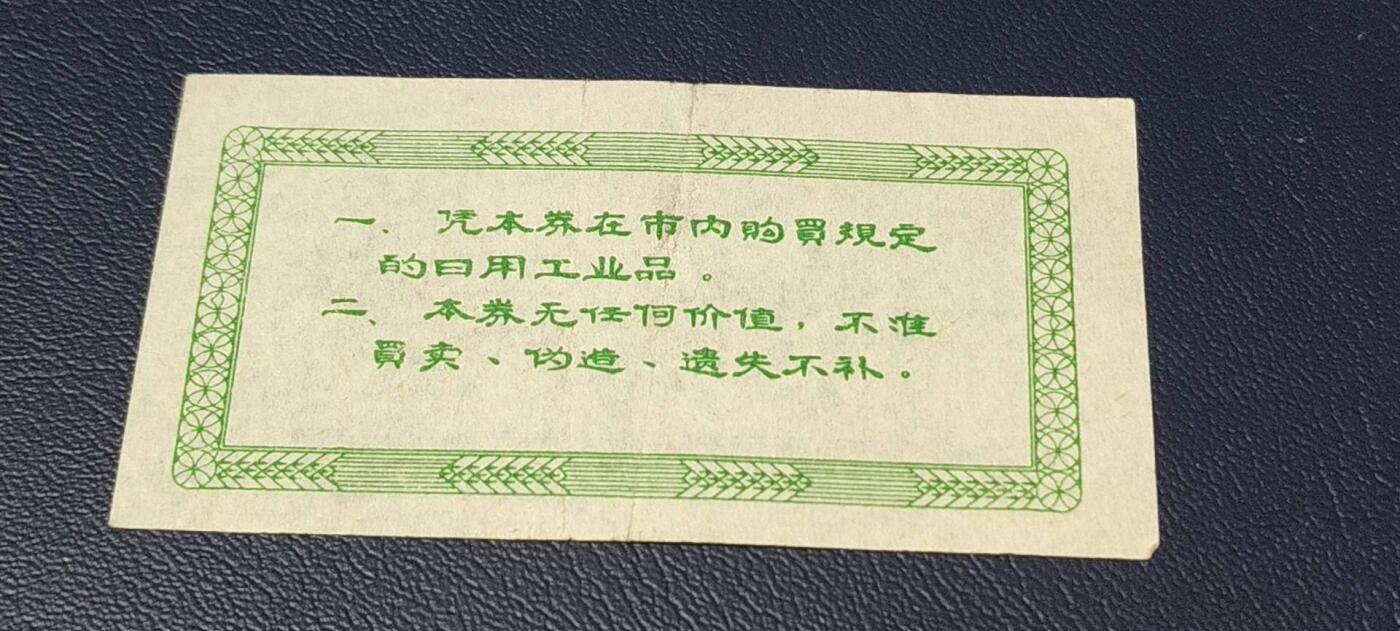 一、凭本券在市内购買規定
的日用工业品。
二、本券无任何价值，不准
買卖、伪造、遗失不补。